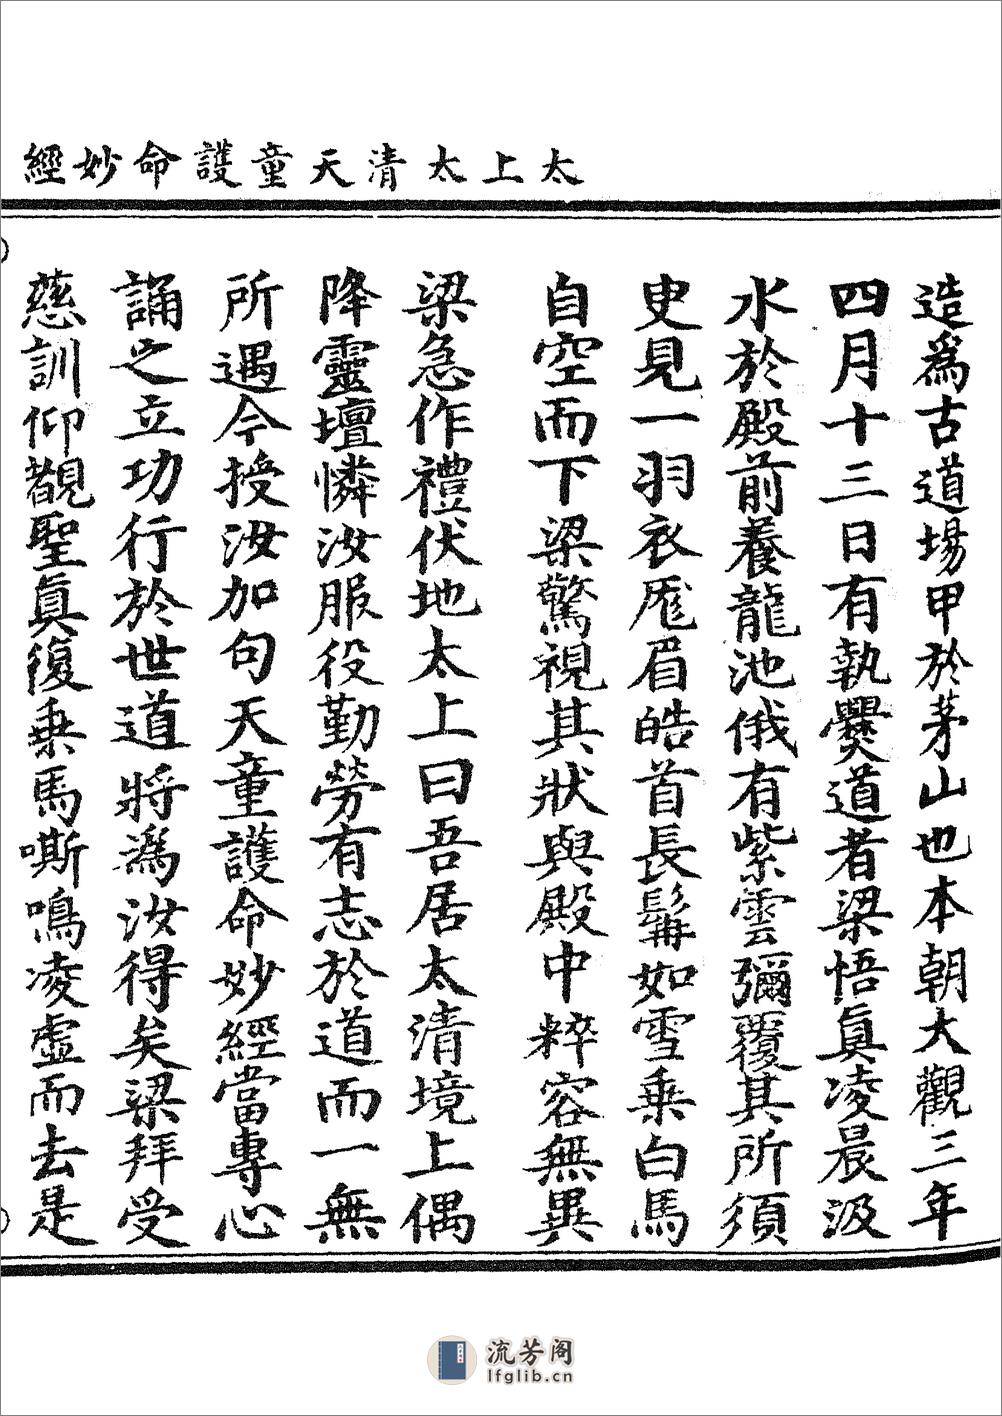 太上太清天童護命妙經
造爲古道場甲於茅山也本朝大觀三年
四月十三日有執爨道者梁悟眞凌晨汲
水於殿前養龍池俄有紫雲彌覆其所須
臾見一羽衣厖眉皓首長髯如雪乗白馬
自空而下梁驚視其狀與殿中粹容無異
梁急作禮伏地太上曰吾居太清境上偶
降靈壇憐汝服役勤勞有志於道而一無
所遇今授汝加句天童護命妙經當專心
誦之立功行於世道將爲汝得矣梁拜受
慈訓仰覩聖眞復乗馬嘶鳴凌虛而去是
流芳阁
lfglib.cn